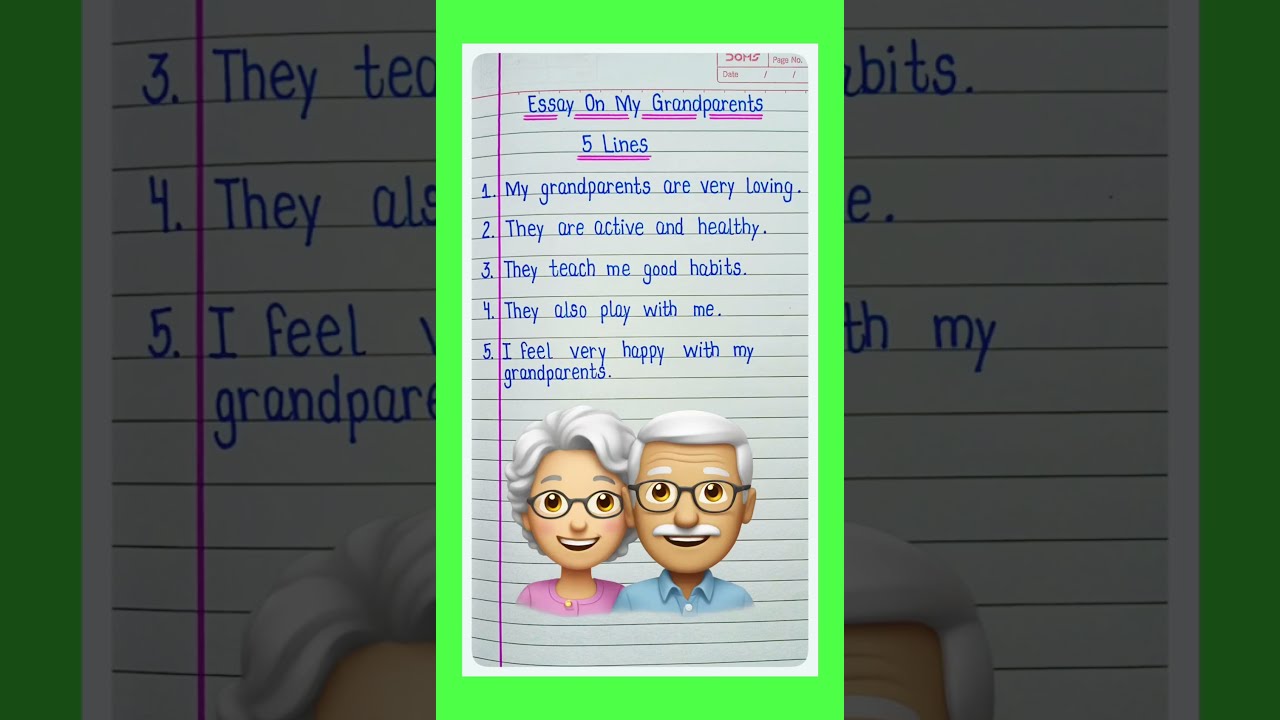 DOMS
Page No.
Date / /
Essay On My Grandparents
5 Lines
1. My grandparents are very loving.
2. They are active and healthy.
3. They teach me good habits.
4. They also play with me.
5. I feel very happy with my
grandparents.